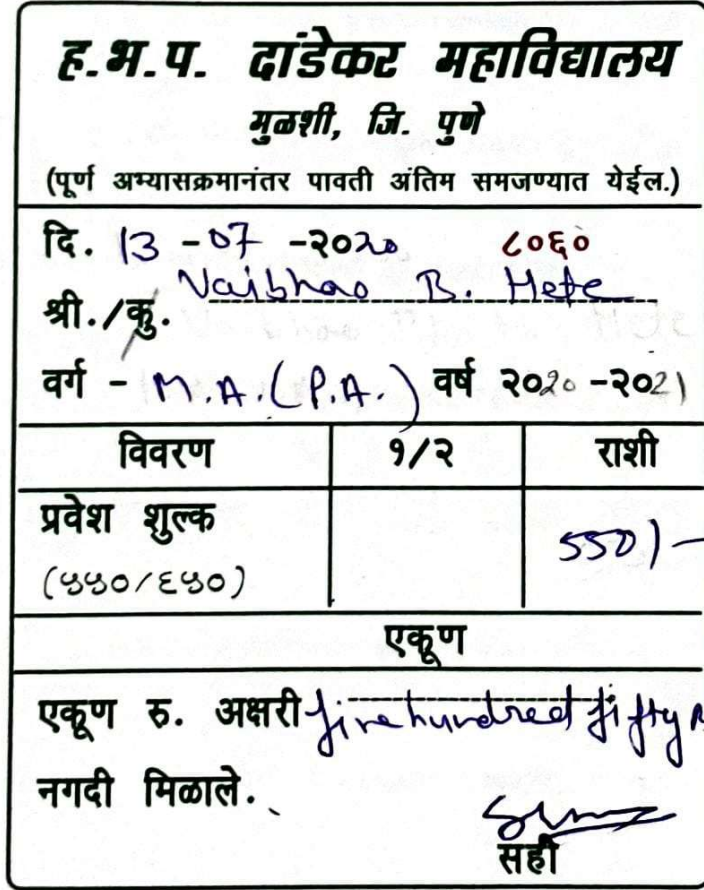 ह.भ.प. दांडेकर महाविद्यालय
मुळशी, जि. पुणे
(पूर्ण अभ्यासक्रमानंतर पावती अंतिम समजण्यात येईल.)
दि. 13 -07 -२०२० ८०६०
श्री./कु. Vaibhao B. Hete
वर्ग - M.A.(P.A.) वर्ष २०२० -२०21
विवरण १/२ राशी
प्रवेश शुल्क 550/-
(५५०/६५०)
एकूण
एकूण रु. अक्षरी five hundred fifty
नगदी मिळाले.
सही